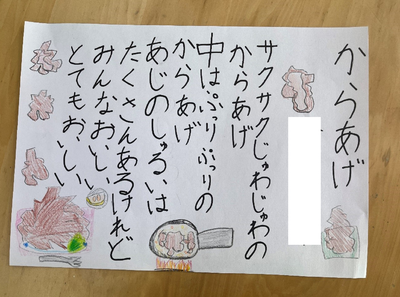 からあげ
サクサクじゅわじゅわの
からあげ
中はぷりっぷりの
からあげ
あじのしゅるいは
たくさんあるけれど
みんなおいしい
とてもおいしい